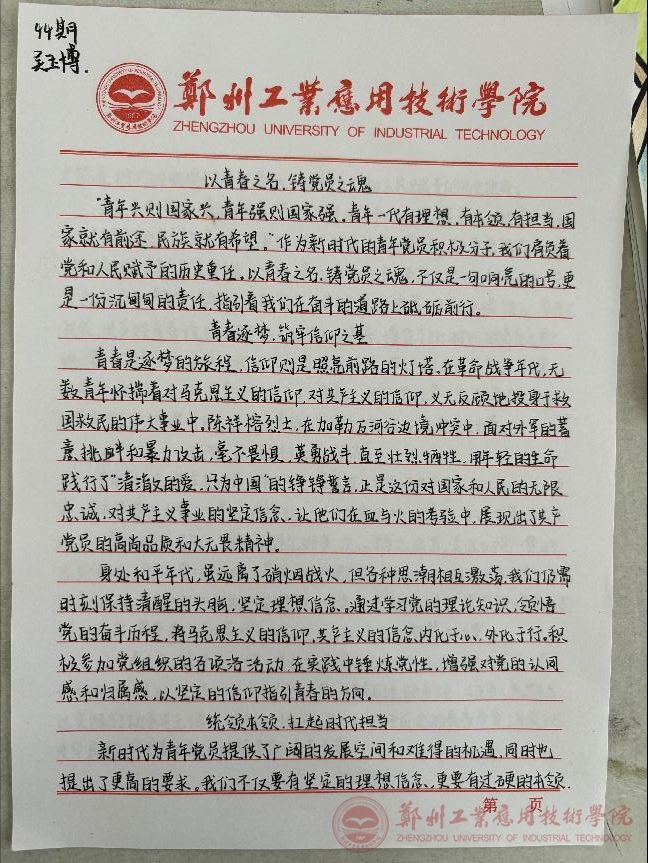 44期
吴玉博.
鄭州工業應用技術學院
ZHENGZHOU UNIVERSITY OF INDUSTRIAL TECHNOLOGY
以青春之名,铸党员之魂
"青年兴则国家兴,青年强则国家强。青年一代有理想,有本领,有担当,国
家就有前途,民族就有希望。"作为新时代的青年党员积极分子,我们肩负着
党和人民赋予的历史重任。以青春之名,铸党员之魂,不仅是一句响亮的口号,更
是一份沉甸甸的责任,指引着我们在奋斗的道路上砥砺前行。
青春逐梦,筑牢信仰之基
青春是逐梦的旅程,信仰则是照亮前路的灯塔。在革命战争年代,无
数青年怀揣着对马克思主义的信仰,对共产主义的信仰,义无反顾地投身于救
国救民的伟大事业中。陈祥榕烈士,在加勒万河谷边境冲突中,面对外军的蓄
意挑衅和暴力攻击,毫不畏惧,英勇战斗,直至壮烈牺牲,用年轻的生命
践行了"清澈的爱,只为中国"的铮铮誓言,正是这份对国家和人民的无限
忠诚,对共产主义事业的坚定信念,让他们在血与火的考验中,展现出了共产
党员的高尚品质和大无畏精神。
身处和平年代,虽远离了硝烟战火,但各种思潮相互激荡,我们仍需
时刻保持清醒的头脑,坚定理想信念。通过学习党的理论知识,领悟
党的奋斗历程,将马克思主义的信仰,共产主义的信念内化于心,外化于行。积
极参加党组织的各项活动,在实践中锤炼党性,增强对党的认同
感和归属感,以坚定的信仰指引青春的方向。
统领本领,扛起时代担当
新时代为青年党员提供了广阔的发展空间和难得的机遇,同时也
提出了更高的要求。我们不仅要有坚定的理想信念,更要有过硬的本领.
第 页
鄭州工業應用技術學院
ZHENGZHOU UNIVERSITY OF INDUSTRIAL TECHNOLOGY